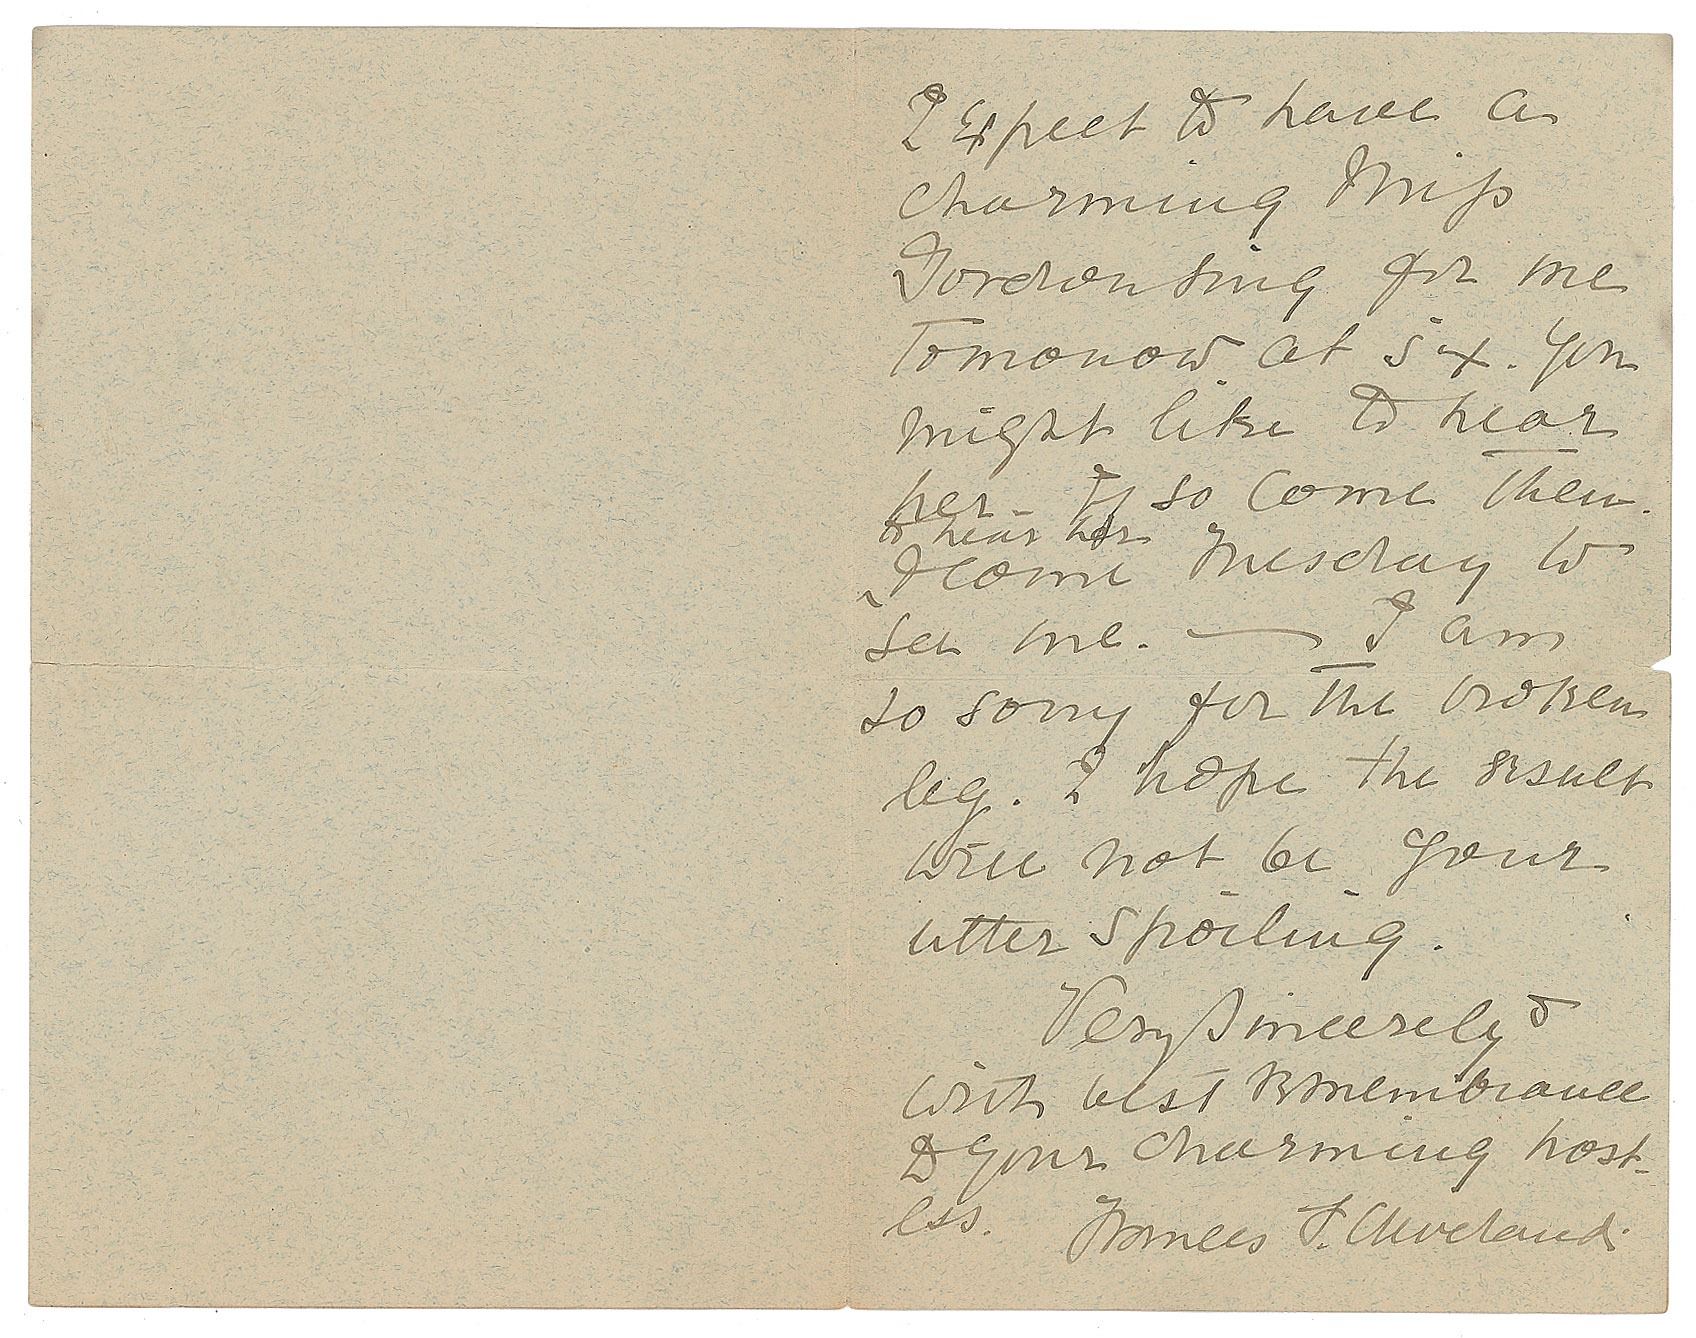 I expect to have a
charming Miss
Gordon sing for me
Tomorrow at six. You
might like to hear
her. If so come then.
to hear her
& come Tuesday to
see me. — I am
so sorry for the broken
leg. I hope the result
will not be your
utter spoiling.
Very Sincerely &
with best remembrance
to your charming host-
ess. Frances F. Cleveland.